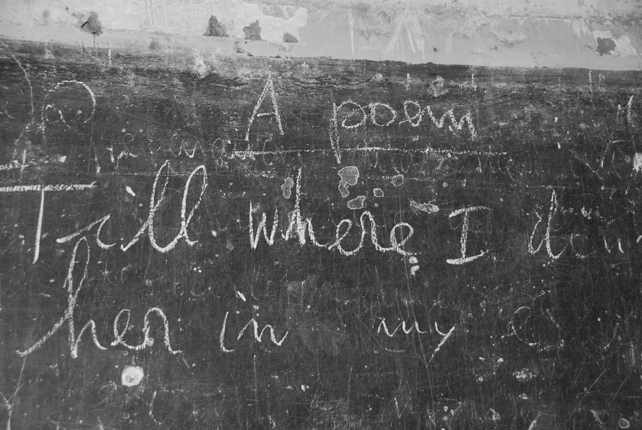 A poem
Till where I
her in my